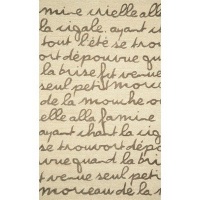 mine vielle alle
la cigale. ayant c
tout l'été se trou
ort dépourvue qu
la brise fut venue
seul petit morceau
de la mouche ou
elle alla famine
ayant chant la cig
se trouvort dépo
vue quand la bri
t venue seul peti
morceau de la m